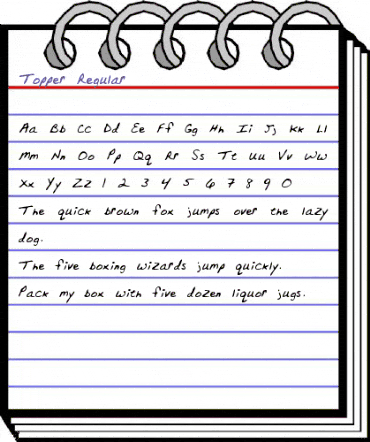 Topper Regular
Aa Bb Cc Dd Ee Ff Gg Hh Ii Jj Kk Ll
Mm Nn Oo Pp Qq Rr Ss Tt Uu Vv Ww
Xx Yy Zz 1 2 3 4 5 6 7 8 9 0
The quick brown fox jumps over the lazy
dog.
The five boxing wizards jump quickly.
Pack my box with five dozen liquor jugs.